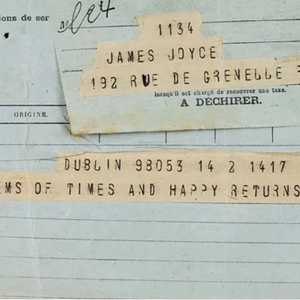 ons de ser
1134
JAMES JOYCE
192 RUE DE GRENELLE
lorsqu'il est chargé de recouvrer une taxe.
A DÉCHIRER.
ORIGINE.
DUBLIN 98053 14 2 1417
EMS OF TIMES AND HAPPY RETURNS